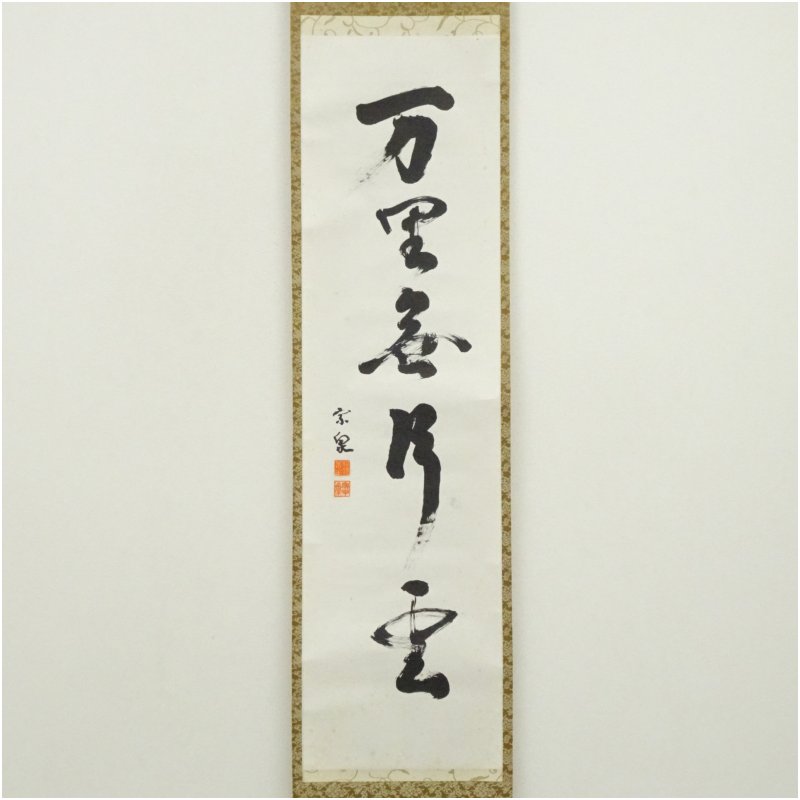 万里無片雲
宗泉